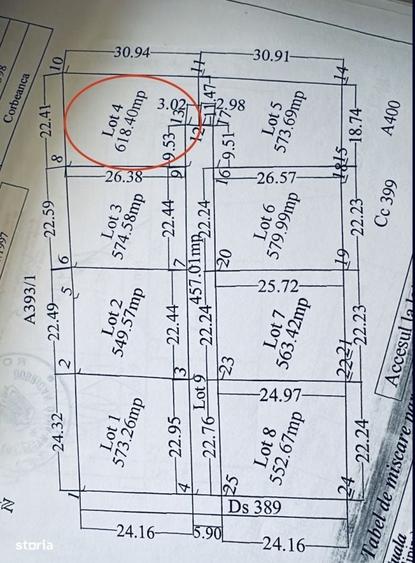 Corbeanca
30.94
30.91
10
11
14
22.41
Lot 4
618.40mp
3.02
2.98
9.53
9.51
Lot 5
573.69mp
18.74
A400
8
26.38
9
16
26.57
18
15
22.59
Lot 3
574.58mp
22.44
22.24
Lot 6
579.99mp
22.23
Cc 399
6
7
20
19
A393/1
5
457.01mp
25.72
22.49
Lot 2
549.57mp
22.44
22.24
Lot 7
563.42mp
22.23
2
3
23
22
21
24.97
24.32
Lot 1
573.26mp
22.95
Lot 9
22.76
Lot 8
552.67mp
22.24
Accesul la
1
4
25
24
Ds 389
Tabel de miscare
24.16
5.90
24.16
N
storia